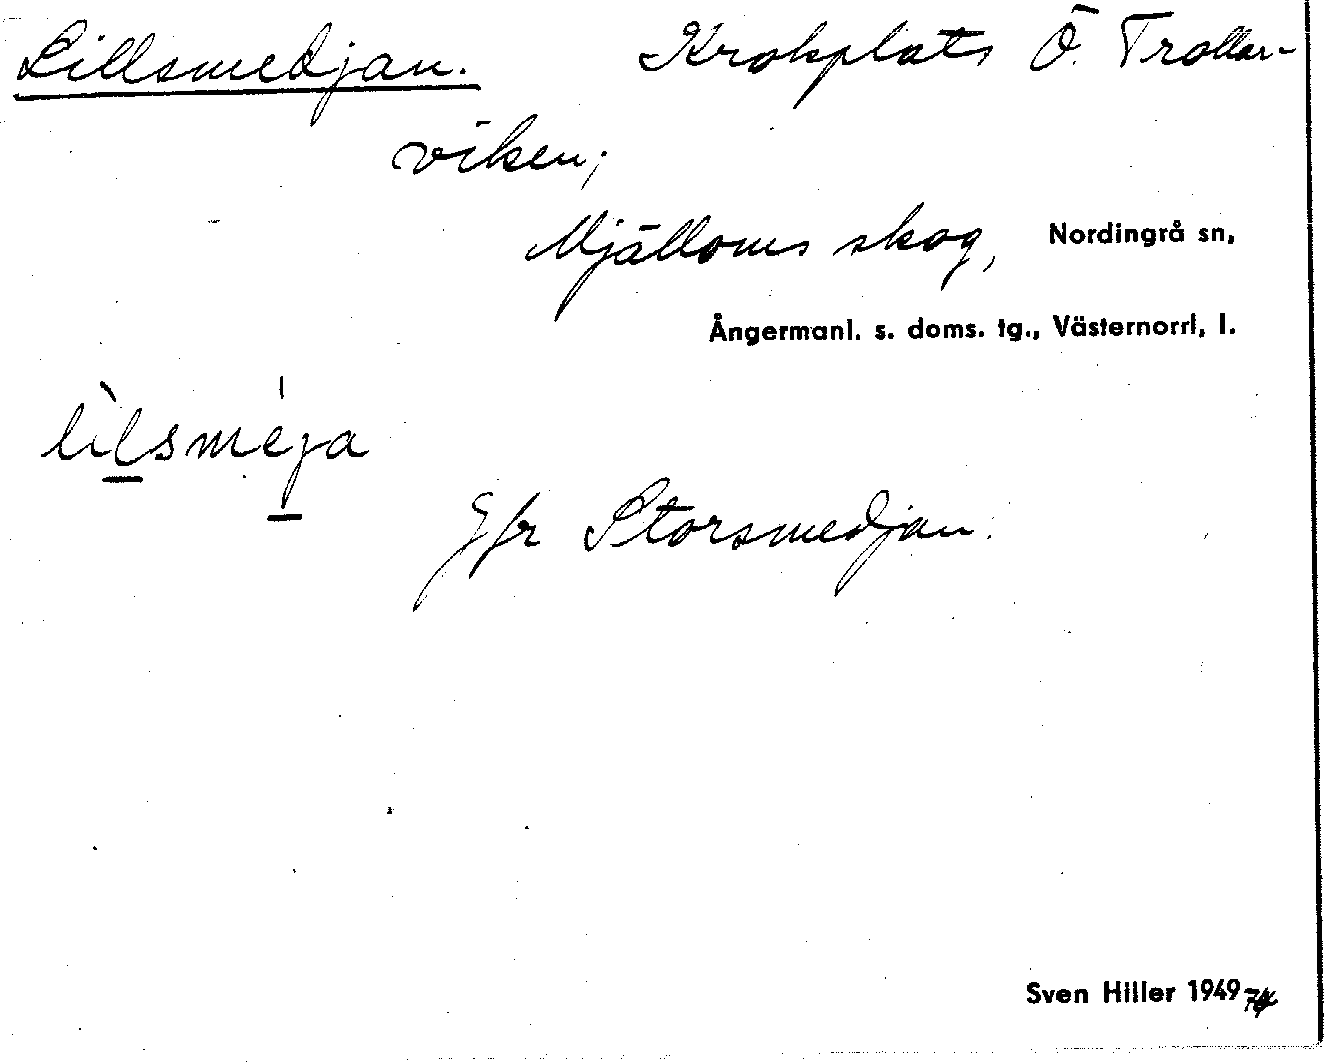 Lillsmedjan. Krokplats Ö. Trollar-
viken;
Mjälloms skog, Nordingrå sn,
Ångermanl. s. doms. tg., Västernorrl, l.
lìlsméja
Jfr Storsmedjan.
Sven Hiller 1949